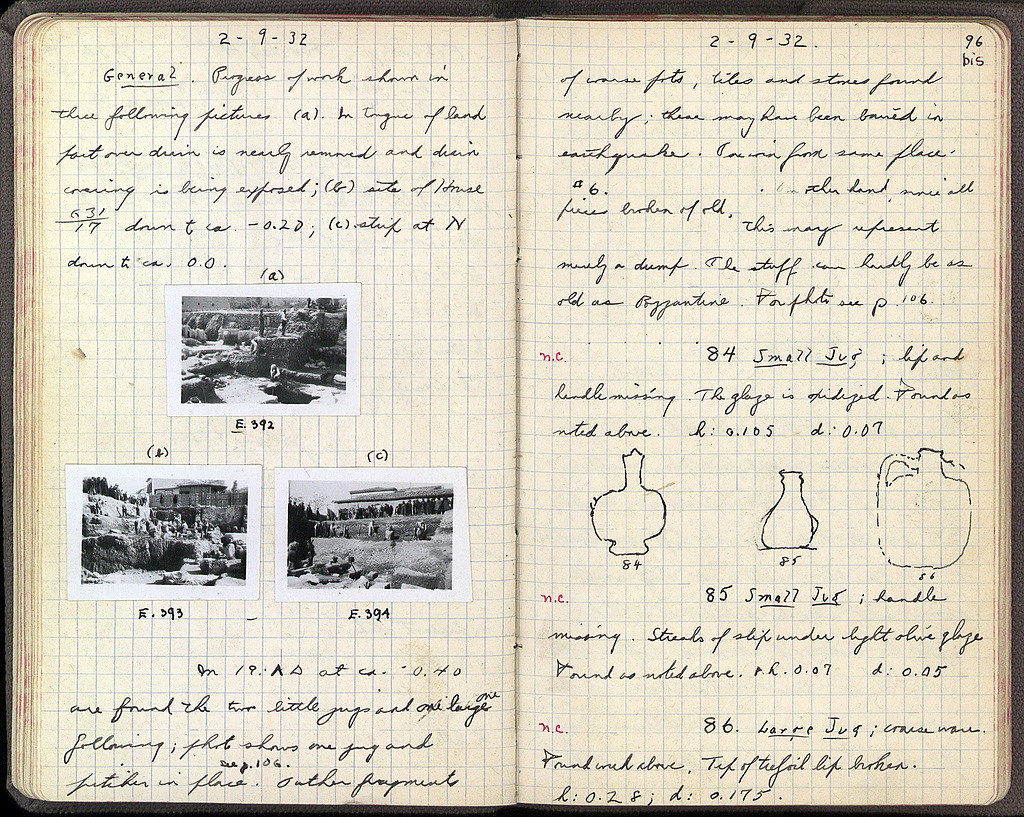 2 - 9 - 32
General. Progress of work shown in
three following pictures (a). In tongue of land
part over drain is nearly removed and drain
covering is being exposed; (b) site of House
631/17 down to ca. -0.20; (c) strip at N
down to ca. 0.0.
(a)
E.392
(b) (c)
E.393 E.394
In 19: at ca. -0.40
are found the two little jugs and one large one
following; phot shows one jug and
see p. 106.
pitcher in place. Other fragments
2 - 9 - 32.
96
bis
of coarse pots, tiles and stones found
nearby; these may have been buried in
earthquake. Coin from same place.
#6. On other hand, since all
pieces broken of old,
this may represent
merely a dump. The stuff can hardly be as
old as Byzantine. For photo see p. 106.
n.c. 84 Small Jug; lip and
handle missing. The glaze is oxidized. Found as
noted above. h: 0.105 d: 0.07
84 85 86
n.c. 85 Small Jug; handle
missing. Streaks of slip under light olive glaze
Found as noted above. h. 0.07 d: 0.05
n.c. 86. Large Jug; coarse ware.
Found with above. Tip of trefoil lip broken.
h: 0.28; d: 0.175.